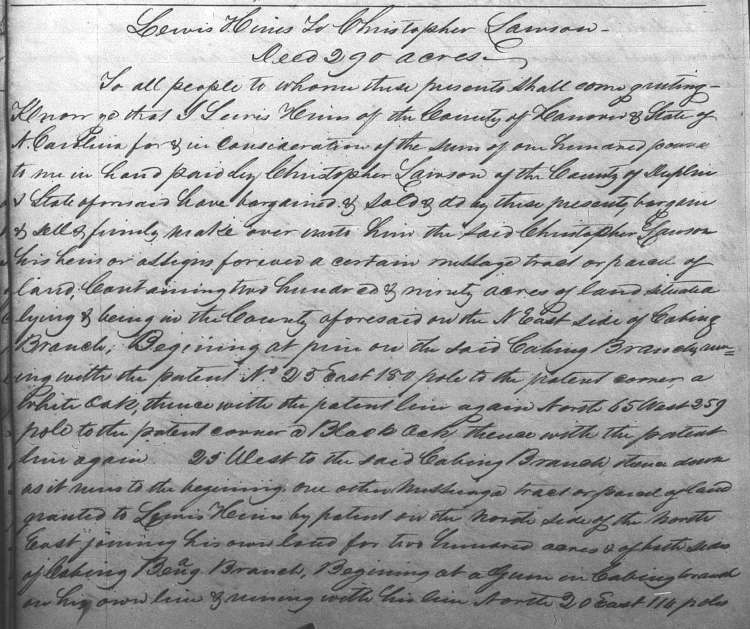 Lewis Hines To Christopher Lawson -
Deed 290 acres -
To all people to whome these presents shall come greeting -
Know ye that I Lewis Hines of the County of & State of
N. Carolina for & in consideration of the sum of one hundred pound
to me in hand paid by Christopher Lawson of the County of Duplin
& State aforesaid have bargained & sold & do by these presents bargain
& sell & firmly make over unto him the said Christopher Lawson
his heirs or assigns forever a certain message tract or parcel of
land, Containing two hundred & ninety acres of land situated
lying & being in the County aforesaid on the N East side of Cabing
Branch, Begining at pine on the said Cabing Branch, run=
ing with the patent No 25 East 180 pole to the patent corner a
White Oak, thence with the patent line again North 65 West 259
pole to the patent corner a Black Oak thence with the patent
line again 25 West to the said Cabing Branch thence down
as it runs to the begining one other tract or parcel of land
granted to Lewis Hines by patent on the North side of the North
East joining his own land for two hundred acres & of both sides
of Cabing Branch, Begining at a Gum in Cabing branch
in his own line & runing with his line North 20 East 114 poles